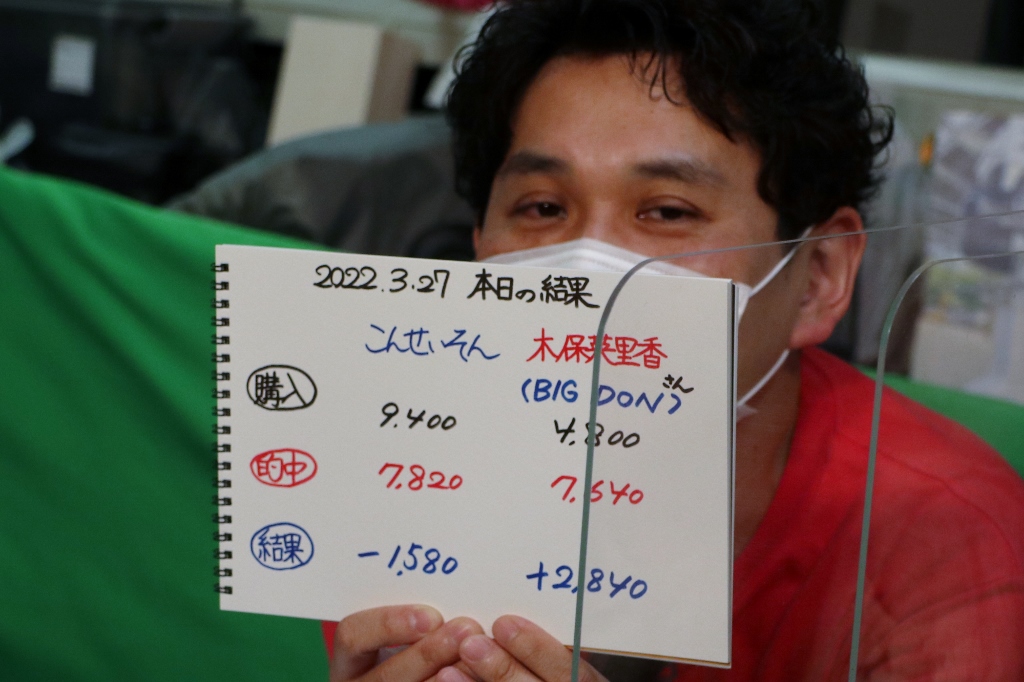 2022.3.27 本日の結果
こんせいそん 木保菜里香
(BIG DON)さん
購入 9.400 4.800
的中 7.820 7.640
結果 -1.580 +2.840